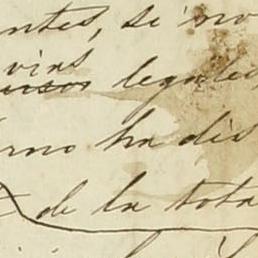 ntes, si no
vias
legales
rno ha dis
de la tota